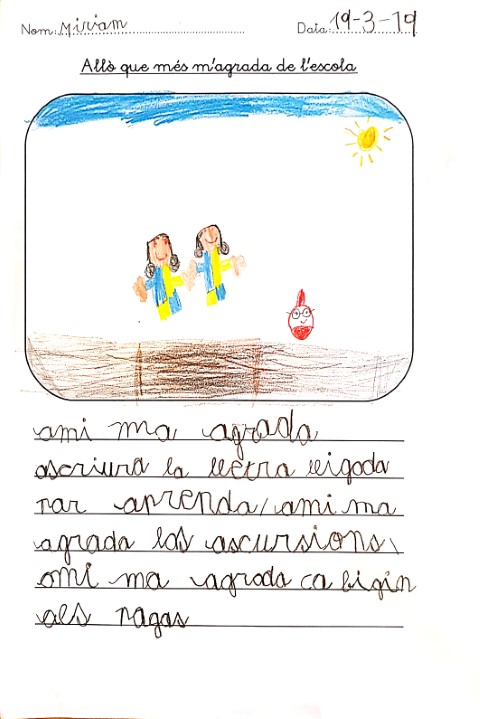 Nom: Miriam Data: 19-3-19
Allò que més m'agrada de l'escola
ami ma agrada
ascriura la lletra lligada
rar aprenda, ami ma
agrada las ascursions,
ami ma agrada ca bigin
als ragas